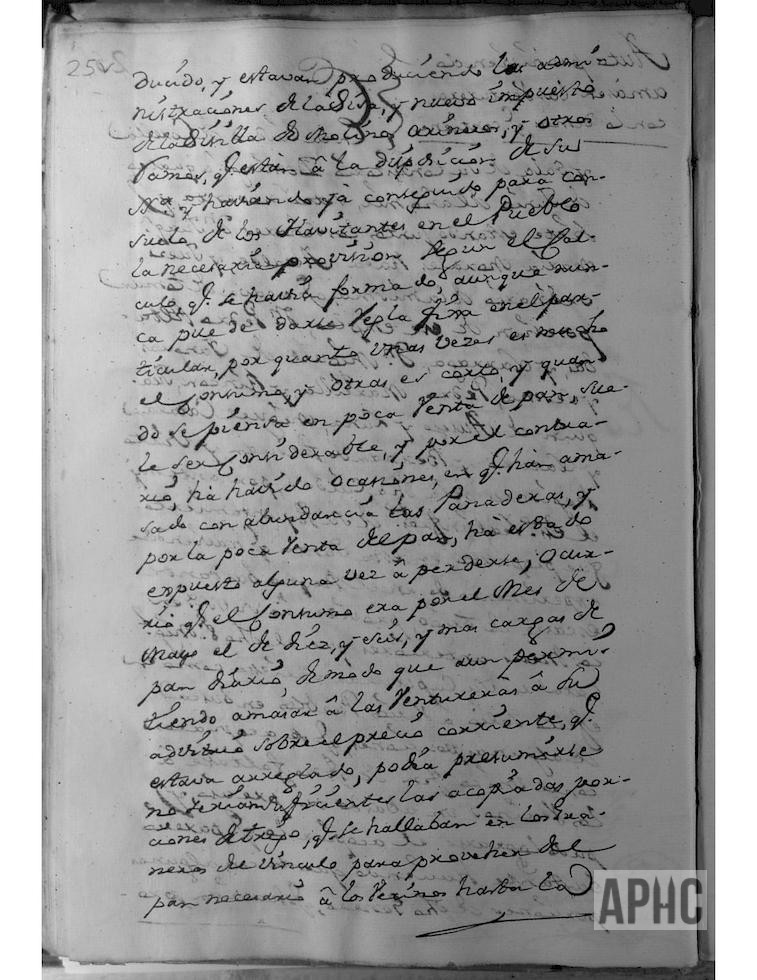 25v
ducido, y estavan produciendo la admi-
nistraciones de la Sisa, y nuevo impuesto
de la Sisilla de Molino, y otros
Ramos, q.e están â la disposición de su
y haviendo ya conseguido para con-
suelo de los Havitantes en el Pueblo
la necesaria provisión segun el Cal-
culo, q.e se havía formado, aunque nun-
ca puede darse regla fixa en el par-
ticular, por quanto unas vezes es mucho
el Consumo, y otras es corto, y quan-
do se piensa en poca Venta de pan, sue-
le ser Considerable, y por el contra-
rio ha havido ocasiones, en q.e han ama-
sado con abundancia las Panaderas, y
por la poca Venta del pan, ha estado
expuesto alguna vez â perderse,
rio q.e el Consumo era por el Mes de
Mayo el de diéz, y seis, y mas cargas de
pan diario, de modo que aun permi-
tiendo amasar â las Ventureras â su
advitrio sobre el precio corriente, q.e
estava arreglado, podía presumirse
no serían suficientes las acopiadas por-
ciones de trigo, q.e se hallaban en los Gra-
neros de vinculo para proveher del
pan necesario â los Vezinos hasta la
APHC